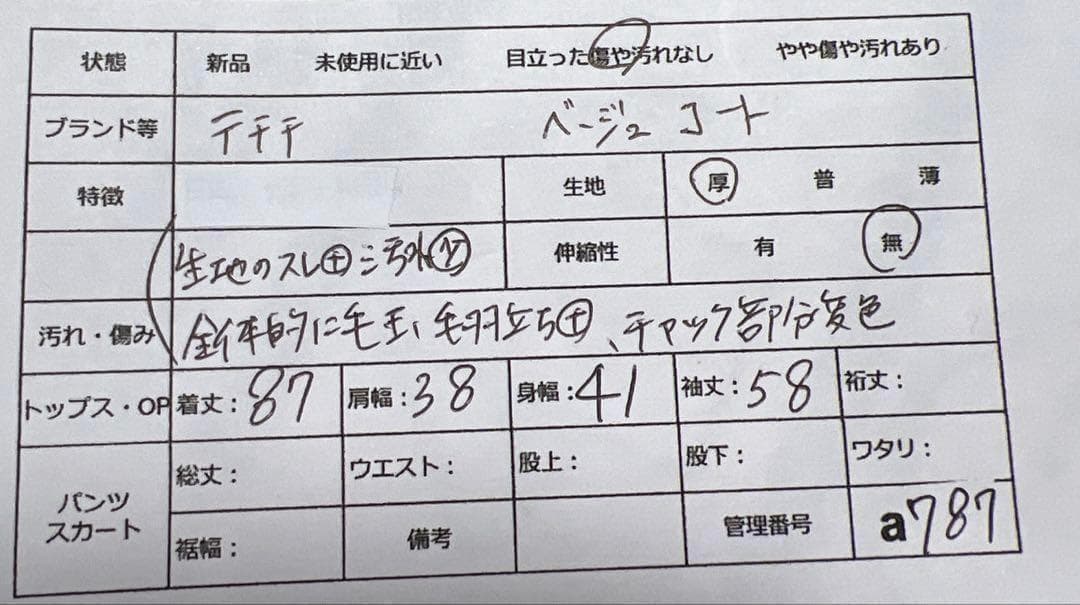 状態 新品 未使用に近い 目立った傷や汚れなし やや傷や汚れあり
ブランド等 テチチ ベージュ コート
特徴 生地 厚 普 薄
生地のスレ 汚れ 伸縮性 有 無
汚れ・傷み 全体的に毛玉、毛羽立ち、チャック部分変色
トップス・OP 着丈：87 肩幅：38 身幅：41 袖丈：58 裄丈：
パンツ スカート 総丈： ウエスト： 股上： 股下： ワタリ：
裾幅： 備考 管理番号 a787